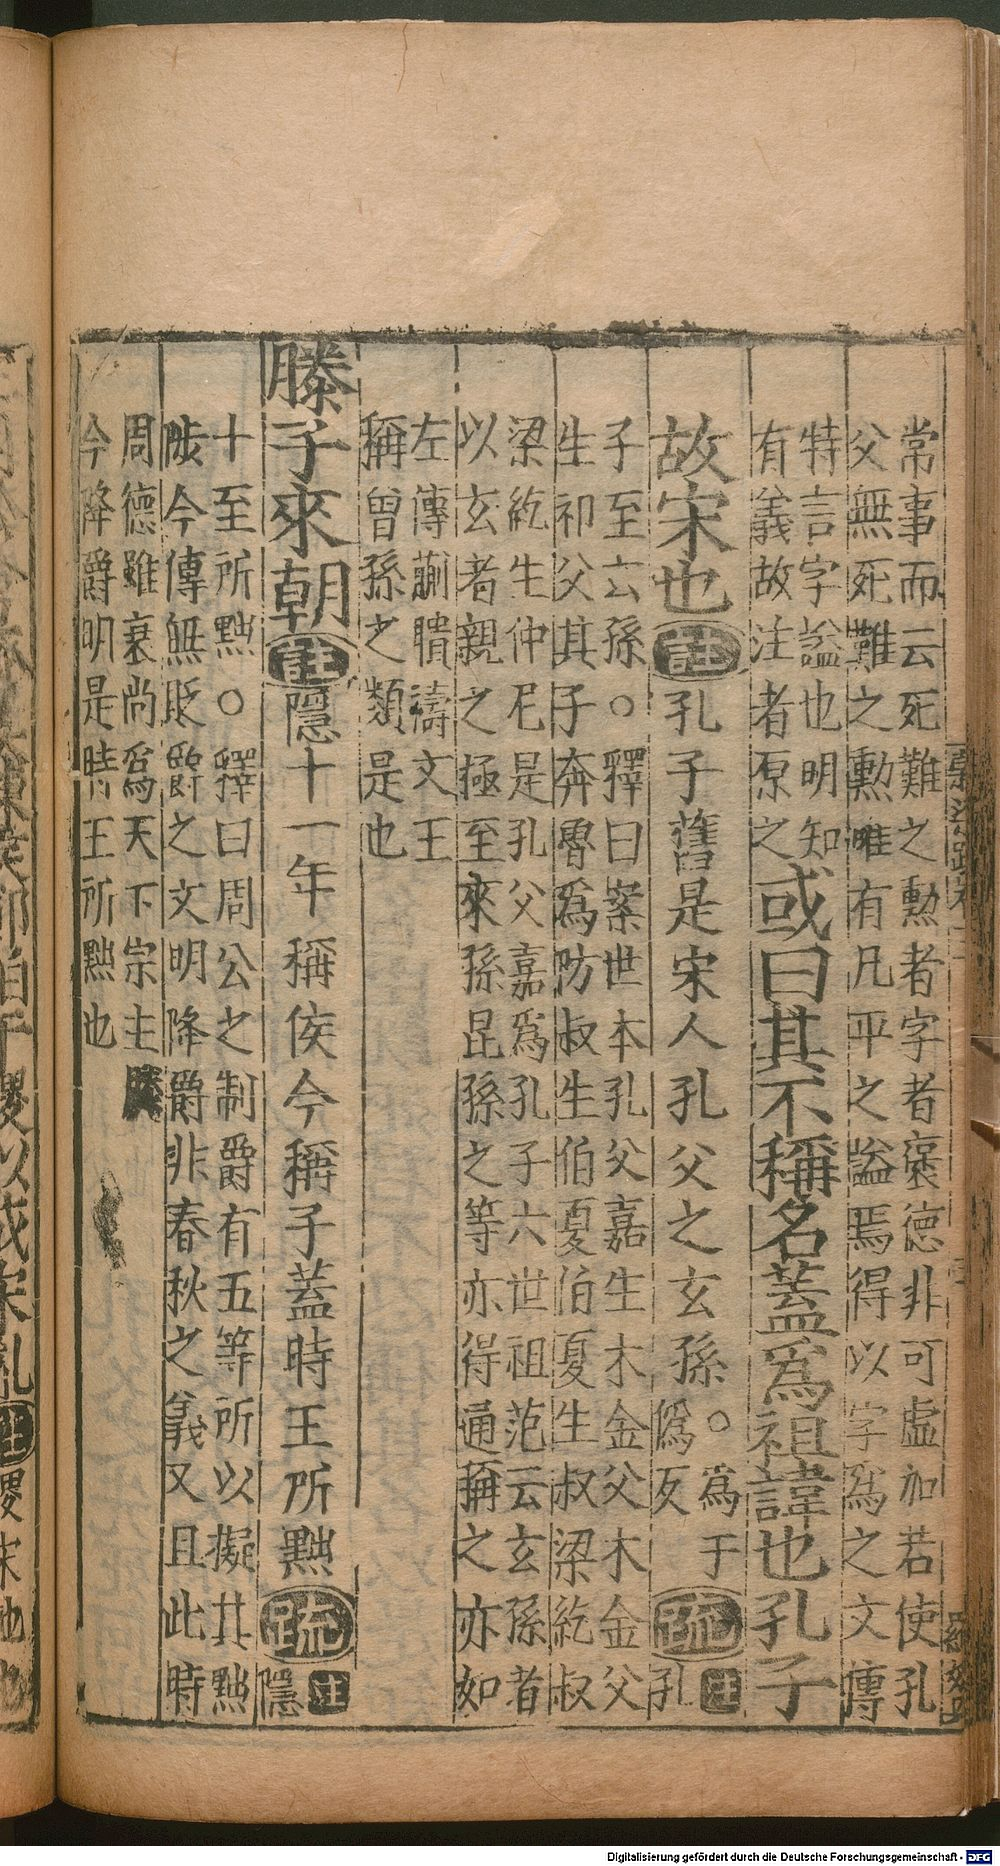 常事而云死難之勳者字者褒德非可虛加若使孔
父無死難之勳唯有凡平之謚焉得以字爲之文傳
特言字謚也明知
有義故注者原之
或曰其不稱名蓋爲祖諱也孔子
故宋也
註
孔子舊是宋人孔父之玄孫。
爲于
僞反
疏
注
孔
子至玄孫。釋曰案世本孔父嘉生木金父木金父
生祁父其子奔魯爲防叔生伯夏伯夏生叔梁紇叔
梁紇生仲尼是孔父嘉爲孔子六世祖范云玄孫者
以玄者親之極至來孫昆孫之等亦得通稱之亦如
左傳蒯聵禱文王
稱曾孫之類是也
滕子來朝
註
隱十一年稱侯今稱子蓋時王所黜
疏
注
隱
十至所黜。釋曰周公之制爵有五等所以擬其黜
陟今傳無貶爵之文明降爵非春秋之義又且此時
周德雖衰尚爲天下宗主滕
今降爵明是時王所黜也
Digitalisierung gefördert durch die Deutsche Forschungsgemeinschaft - DFG